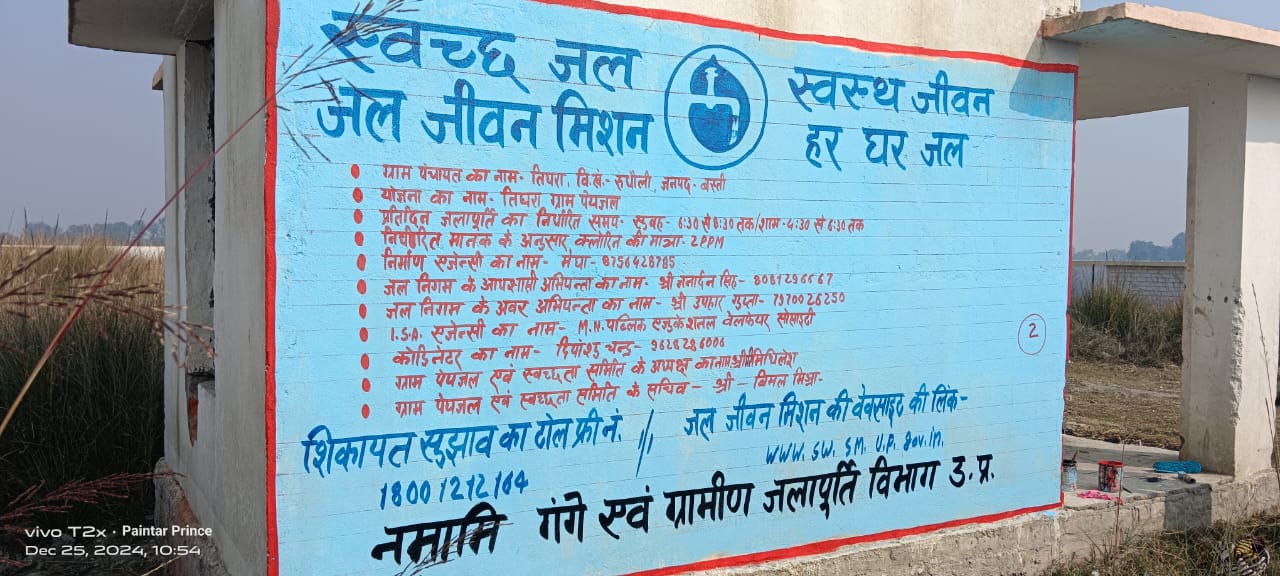 स्वच्छ जल
जल जीवन मिशन
स्वस्थ जीवन
हर घर जल
ग्राम पंचायत का नाम- तिघरा, वि.खं.- रुधौली, जनपद- बस्ती
योजना का नाम- तिघरा ग्राम पेयजल
प्रतिदिन जलापूर्ति का निर्धारित समय- सुबह- 6:30 से 8:30 तक/शाम-4:30 से 6:30 तक
निर्धारित मानक के अनुसार क्लोरिन की मात्रा- 2PPM
निर्माण एजेन्सी का नाम- मेघा- 8756428785
जल निगम के अधिशासी अभियन्ता का नाम- श्री जनार्दन सिंह-
जल निगम के अवर अभियन्ता का नाम- श्री उपहार गुप्ता- 7970026250
I.S.A. एजेन्सी का नाम- M.N. पब्लिक एजुकेशनल वेलफेयर सोसाइटी
कोर्डिनेटर का नाम- दिपांशु चन्द्र- 9628286006
ग्राम पेयजल एवं स्वच्छता समिति के अध्यक्ष का नाम श्रीमिथिलेश
ग्राम पेयजल एवं स्वच्छता समिति के सचिव- श्री - विमल मिश्रा-
2
शिकायत सुझाव का टोल फ्री नं. //,
18001212164
जल जीवन मिशन की वेबसाइट की लिंक-
WWW. SW. SM. U.P. Gov. in.
नमामि गंगे एवं ग्रामीण जलापूर्ति विभाग उ.प्र.
vivo T2x · Paintar Prince
Dec 25, 2024, 10:54